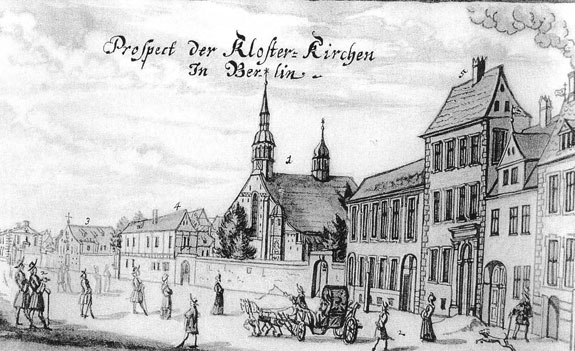 Prospect der Kloster=Kirchen
In Berlin.
5
1
4
3
2